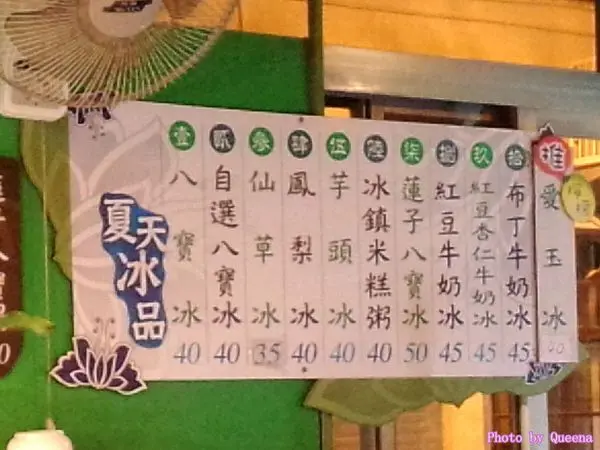 夏天冰品
壹 八寶冰 40
貳 自選八寶冰 40
參 仙草冰 35
肆 鳳梨冰 40
伍 芋頭冰 40
陸 冰鎮米糕粥 40
柒 蓮子八寶冰 50
捌 紅豆牛奶冰 45
玖 紅豆杏仁牛奶冰 45
拾 布丁牛奶冰 45
推 愛玉冰
Photo by Queena